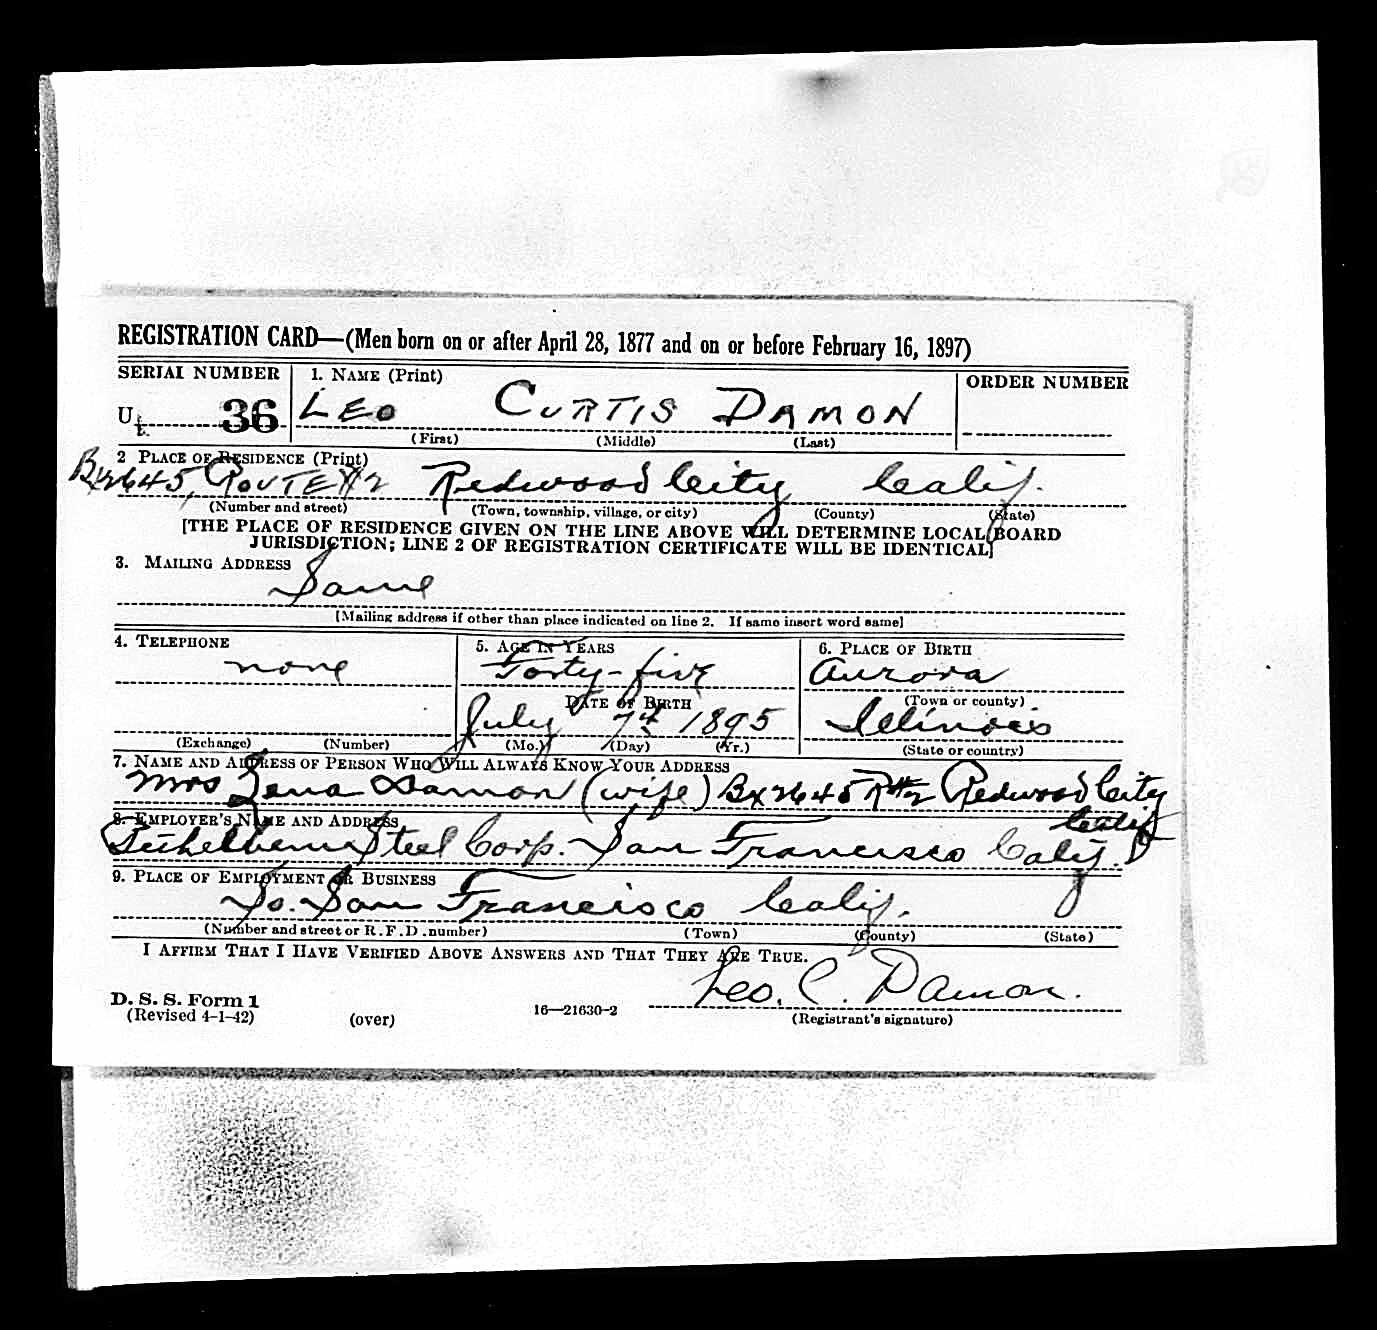 REGISTRATION CARD—(Men born on or after April 28, 1877 and on or before February 16, 1897)
SERIAL NUMBER 1. NAME (Print) ORDER NUMBER
U 36 LEO CURTIS DAMON
(First) (Middle) (Last)
2 PLACE OF RESIDENCE (Print)
Bx 2645, ROUTE #2 Redwood City Calif.
(Number and street) (Town, township, village, or city) (County) (State)
[THE PLACE OF RESIDENCE GIVEN ON THE LINE ABOVE WILL DETERMINE LOCAL BOARD
JURISDICTION; LINE 2 OF REGISTRATION CERTIFICATE WILL BE IDENTICAL]
3. MAILING ADDRESS
Same
[Mailing address if other than place indicated on line 2. If same insert word same]
4. TELEPHONE 5. AGE IN YEARS 6. PLACE OF BIRTH
none Forty-five Aurora
DATE OF BIRTH (Town or county)
July 7th 1895 Illinois
(Exchange) (Number) (Mo.) (Day) (Yr.) (State or country)
7. NAME AND ADDRESS OF PERSON WHO WILL ALWAYS KNOW YOUR ADDRESS
Mrs Zena Damon (wife) Bx 2645 R#2 Redwood City
Calif
8. EMPLOYER'S NAME AND ADDRESS
Bethelhem Steel Corp. San Francisco Calif.
9. PLACE OF EMPLOYMENT OR BUSINESS
So. San Francisco Calif.
(Number and street or R. F. D. number) (Town) (County) (State)
I AFFIRM THAT I HAVE VERIFIED ABOVE ANSWERS AND THAT THEY ARE TRUE.
Leo. C. Damon.
D. S. S. Form 1
(Revised 4-1-42) (over) 16—21630-2 (Registrant's signature)